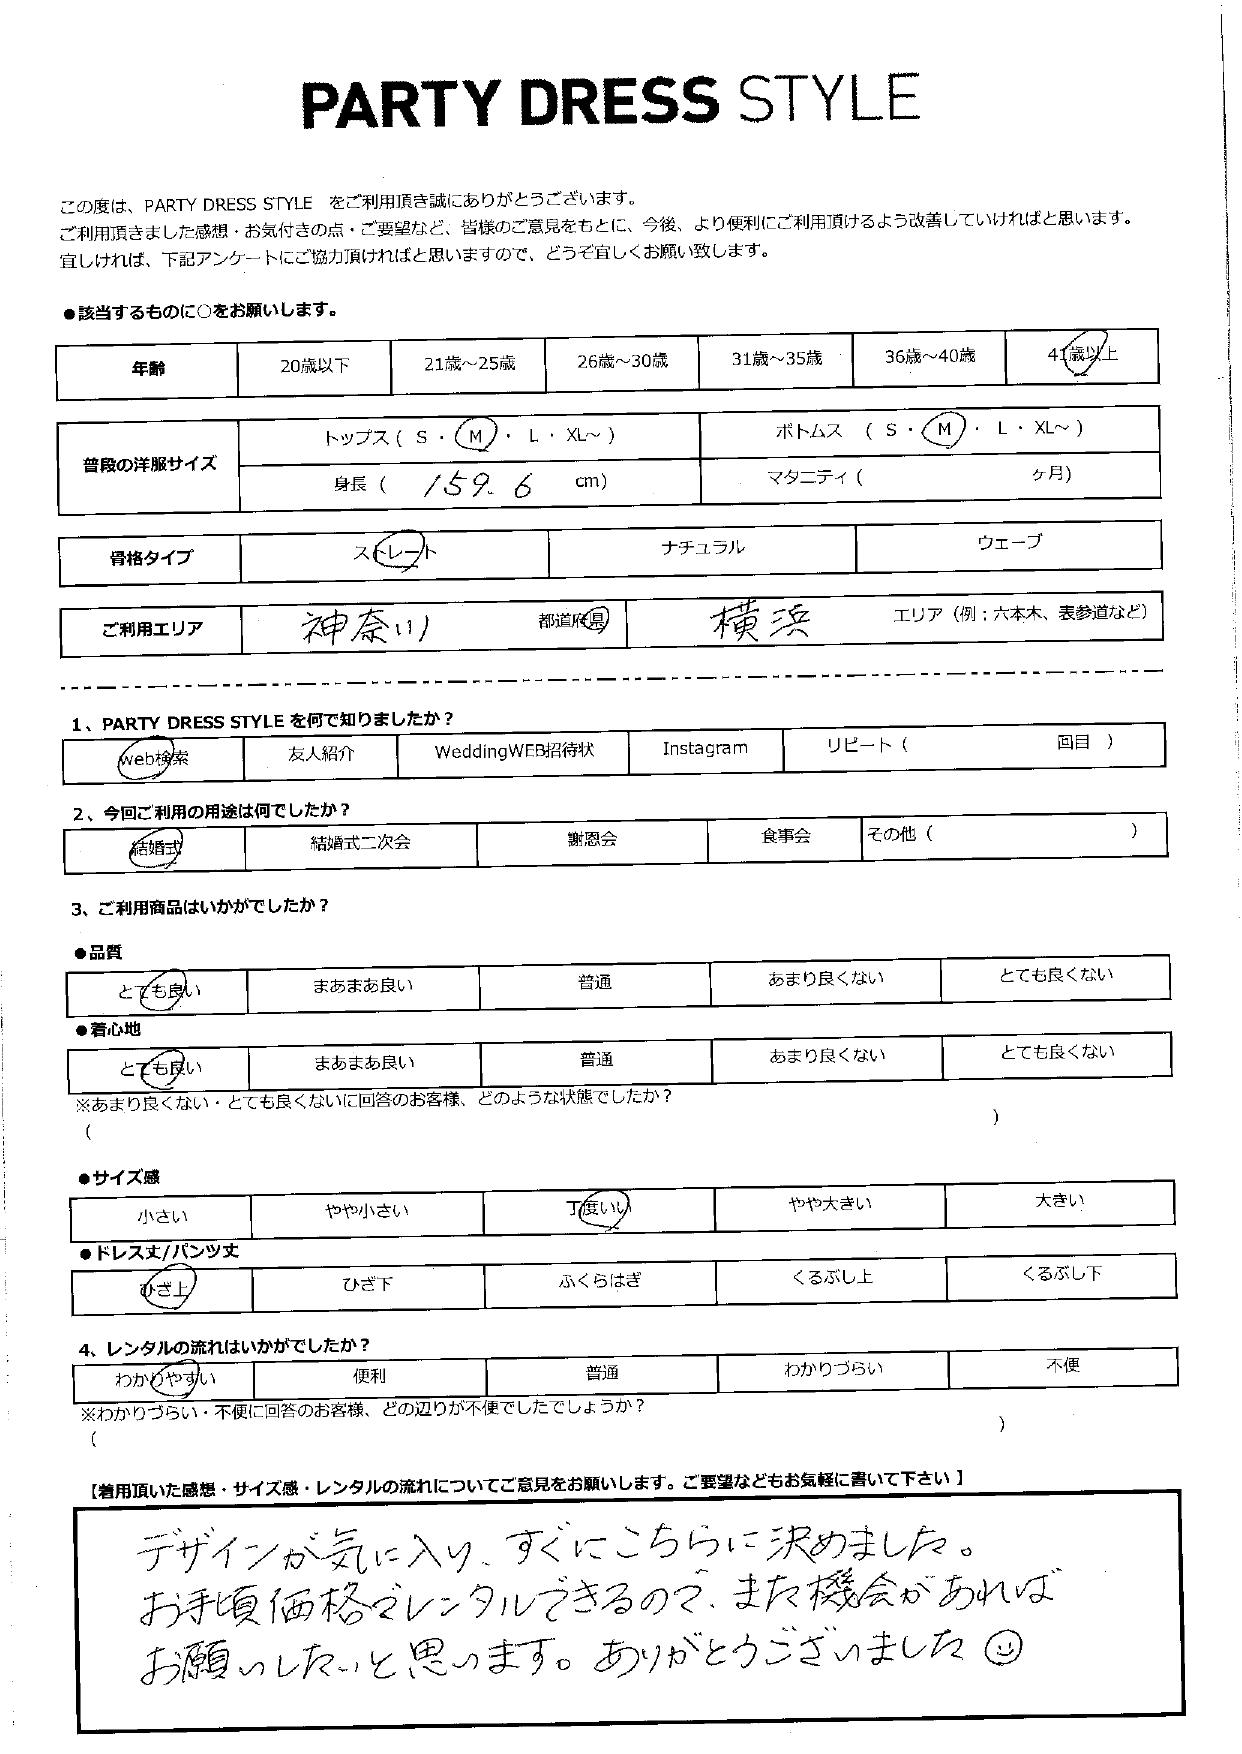 PARTY DRESS STYLE
この度は、PARTY DRESS STYLE をご利用頂き誠にありがとうございます。
ご利用頂きました感想・お気付きの点・ご要望など、皆様のご意見をもとに、今後、より便利にご利用頂けるよう改善していければと思います。
宜しければ、下記アンケートにご協力頂ければと思いますので、どうぞ宜しくお願い致します。
●該当するものに○をお願いします。
年齢 20歳以下 21歳～25歳 26歳～30歳 31歳～35歳 36歳～40歳 41歳以上
普段の洋服サイズ トップス ( S ・ M ・ L ・ XL～ ) ボトムス ( S ・ M ・ L ・ XL～ )
身長 ( 159.6 cm) マタニティ ( ヶ月)
骨格タイプ ストレート ナチュラル ウェーブ
ご利用エリア 神奈川 都道府県 横浜 エリア（例；六本木、表参道など）
1、PARTY DRESS STYLE を何で知りましたか？
web検索 友人紹介 WeddingWEB招待状 Instagram リピート ( 回目 )
2、今回ご利用の用途は何でしたか？
結婚式 結婚式二次会 謝恩会 食事会 その他 ( )
3、ご利用商品はいかがでしたか？
●品質
とても良い まあまあ良い 普通 あまり良くない とても良くない
●着心地
とても良い まあまあ良い 普通 あまり良くない とても良くない
※あまり良くない・とても良くないに回答のお客様、どのような状態でしたか？
( )
●サイズ感
小さい やや小さい 丁度いい やや大きい 大きい
●ドレス丈/パンツ丈
ひざ上 ひざ下 ふくらはぎ くるぶし上 くるぶし下
4、レンタルの流れはいかがでしたか？
わかりやすい 便利 普通 わかりづらい 不便
※わかりづらい・不便に回答のお客様、どの辺りが不便でしたでしょうか？
( )
【着用頂いた感想・サイズ感・レンタルの流れについてご意見をお願いします。ご要望などもお気軽に書いて下さい 】
デザインが気に入り、すぐにこちらに決めました。
お手頃価格でレンタルできるので、また機会があれば
お願いしたいと思います。ありがとうございました☺